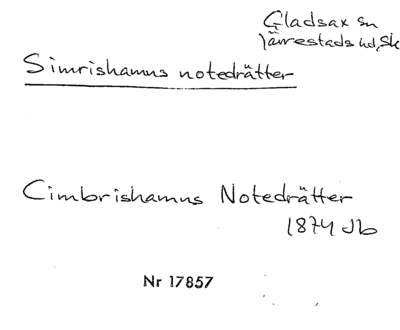 Gladsax sn
Järrestads hd, Sk
Simrishamns notedrätter
Cimbrishamns Notedrätter
1874 Jb
Nr 17857